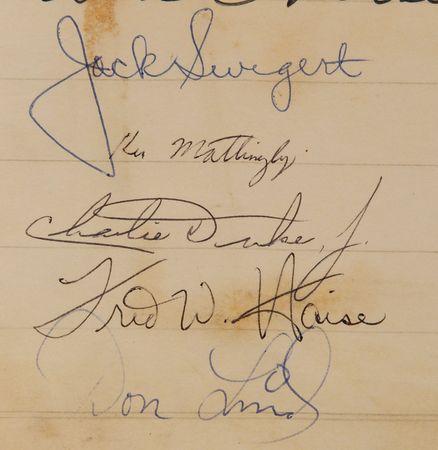 Jack Swigert
Ken Mattingly
Charlie Duke, Jr.
Fred W. Haise
Don Lind